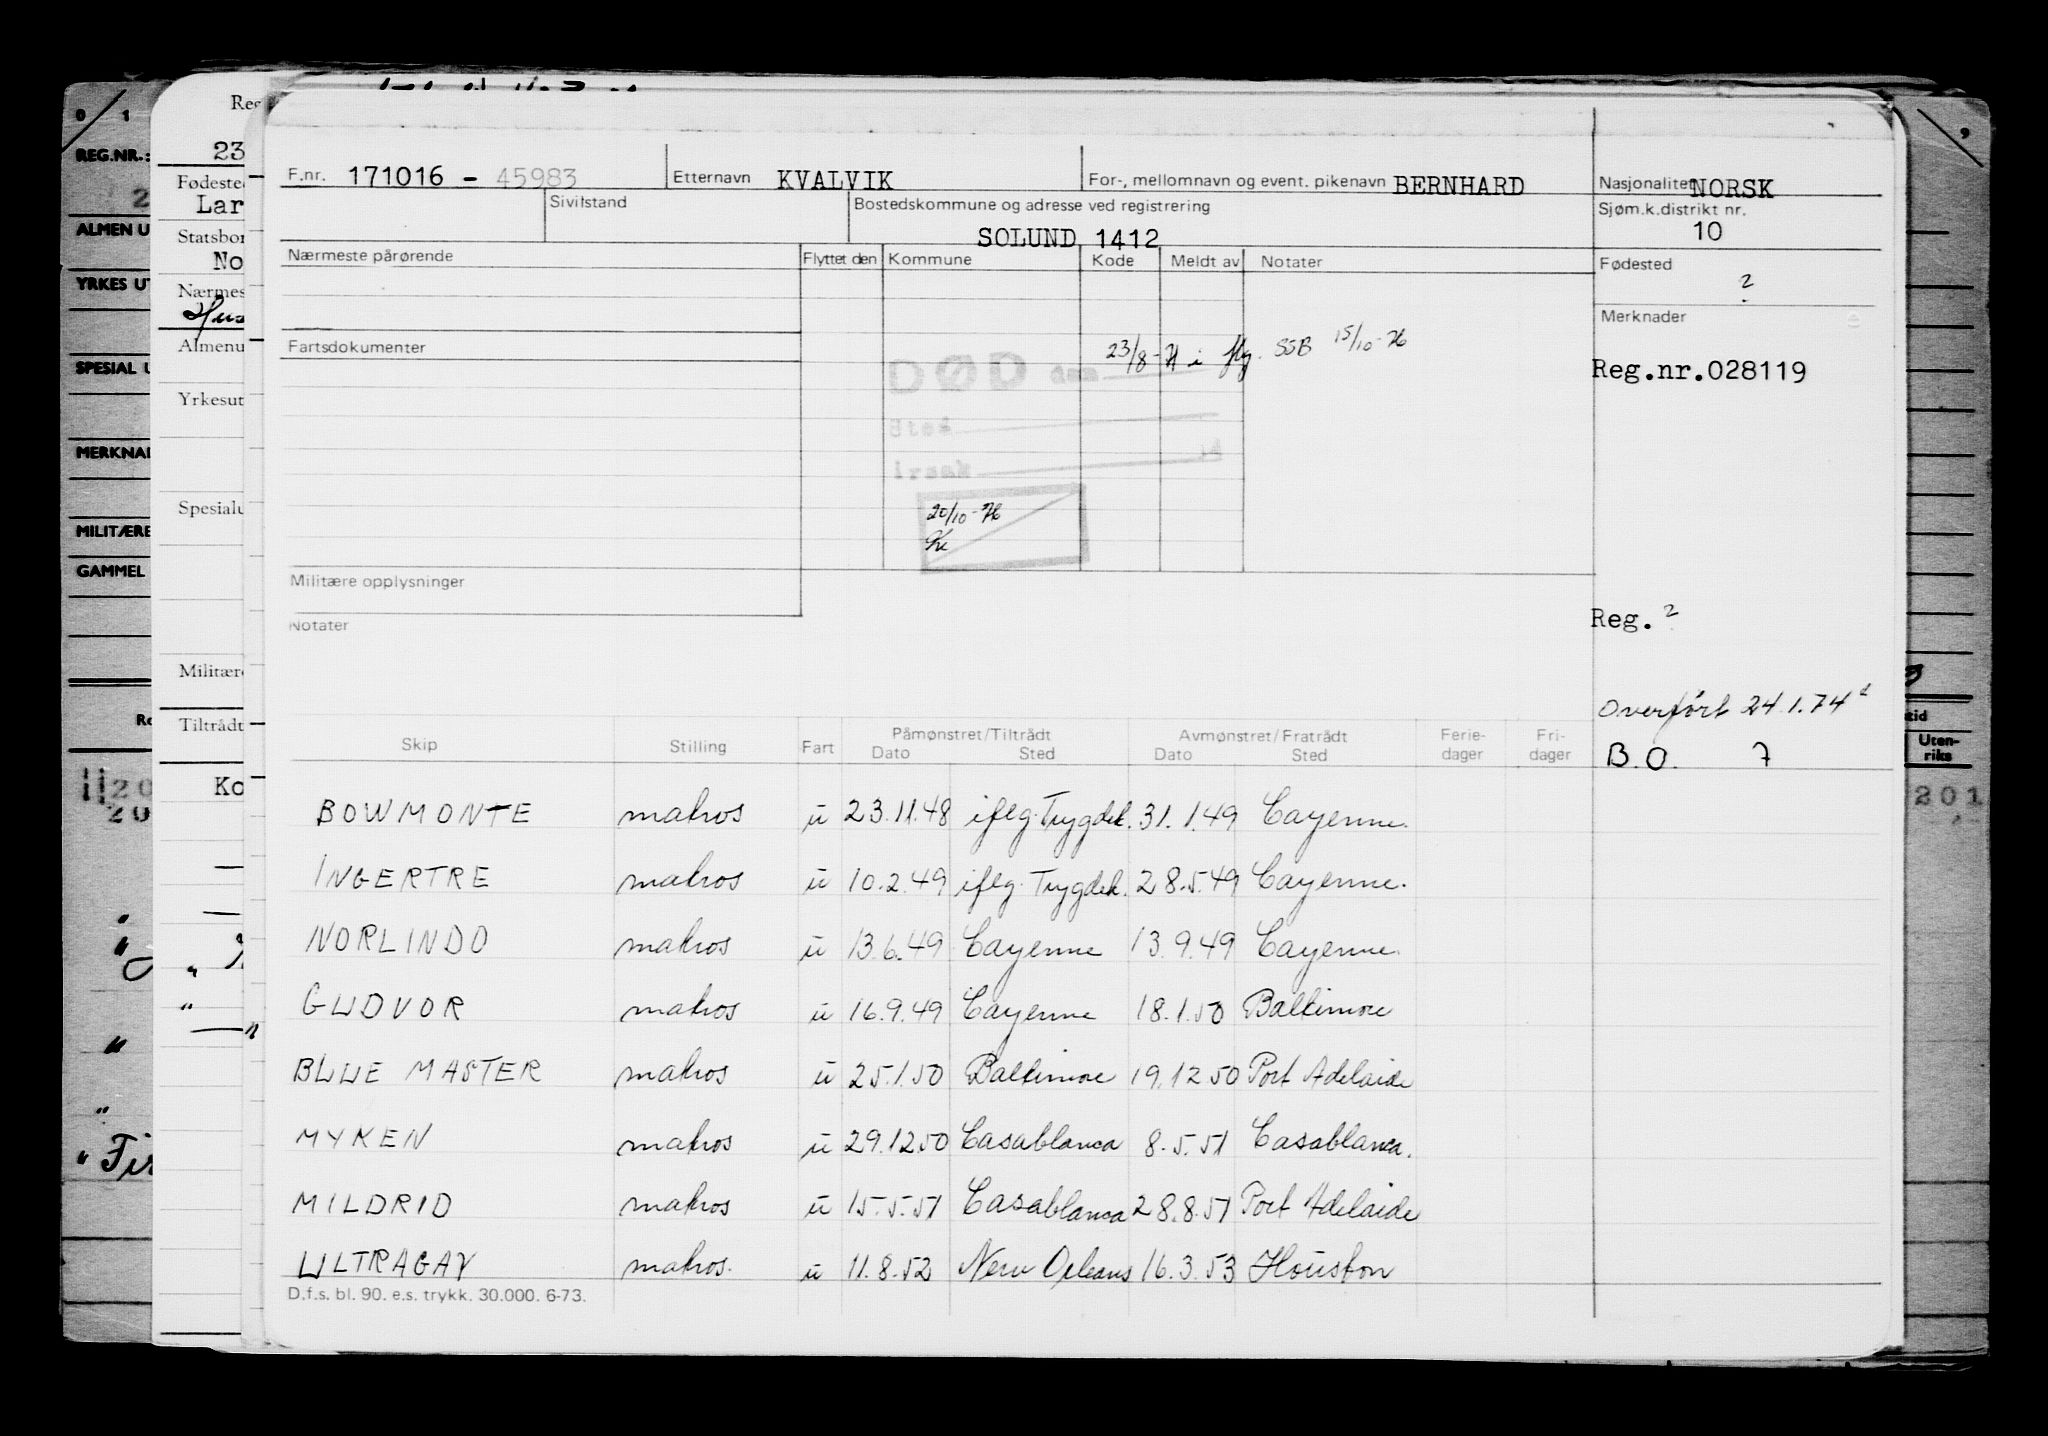 F.nr. 171016 - 45983 Etternavn KVALVIK For-, mellomnavn og event. pikenavn BERNHARD Nasjonalitet NORSK
Sivilstand Bostedskommune og adresse ved registrering Sjøm.k.distrikt nr.
SOLUND 1412 10
Nærmeste pårørende Flyttet den Kommune Kode Meldt av Notater Fødested
?
Merknader
Fartsdokumenter
DØD den 23/8-71 i flg. SSB 15/10-76
Reg.nr.028119
Sted
Årsak
20/10-76
Militære opplysninger
Notater
Reg. ?
Overført 24.1.74
B.O. 7
Skip Stilling Fart Påmønstret/Tiltrådt Avmønstret/Fratrådt Ferie- Fri-
Dato Sted Dato Sted dager dager
BOWMONTE matros u 23.11.48 iflg. Trygdek. 31.1.49 Cayenne.
INGERTRE matros u 10.2.49 iflg. Trygdek. 28.5.49 Cayenne.
NORLINDO matros u 13.6.49 Cayenne 13.9.49 Cayenne.
GUDVOR matros u 16.9.49 Cayenne 18.1.50 Baltimore
BLUE MASTER matros u 25.1.50 Baltimore 19.12.50 Port Adelaide
MYKEN matros u 29.12.50 Casablanca 8.5.51 Casablanca.
MILDRID matros u 15.5.51 Casablanca 28.8.51 Port Adelaide
ULTRAGAY matros. u 11.8.52 New Orleans 16.3.53 Houston
D.f.s. bl. 90. e.s. trykk. 30.000. 6-73.
Reg
23
Fødested
Lar
Statsbor
No
Nærmes
Hus
Almenu
Yrkesut
Spesialu
Militære
Tiltrådt
Ko
0 1
REG.NR.:
2
ALMEN U
YRKES UT
SPESIAL U
MERKNAD
MILITÆRE
GAMMEL
20
20
Fir
9
tid
Uten-
riks
201